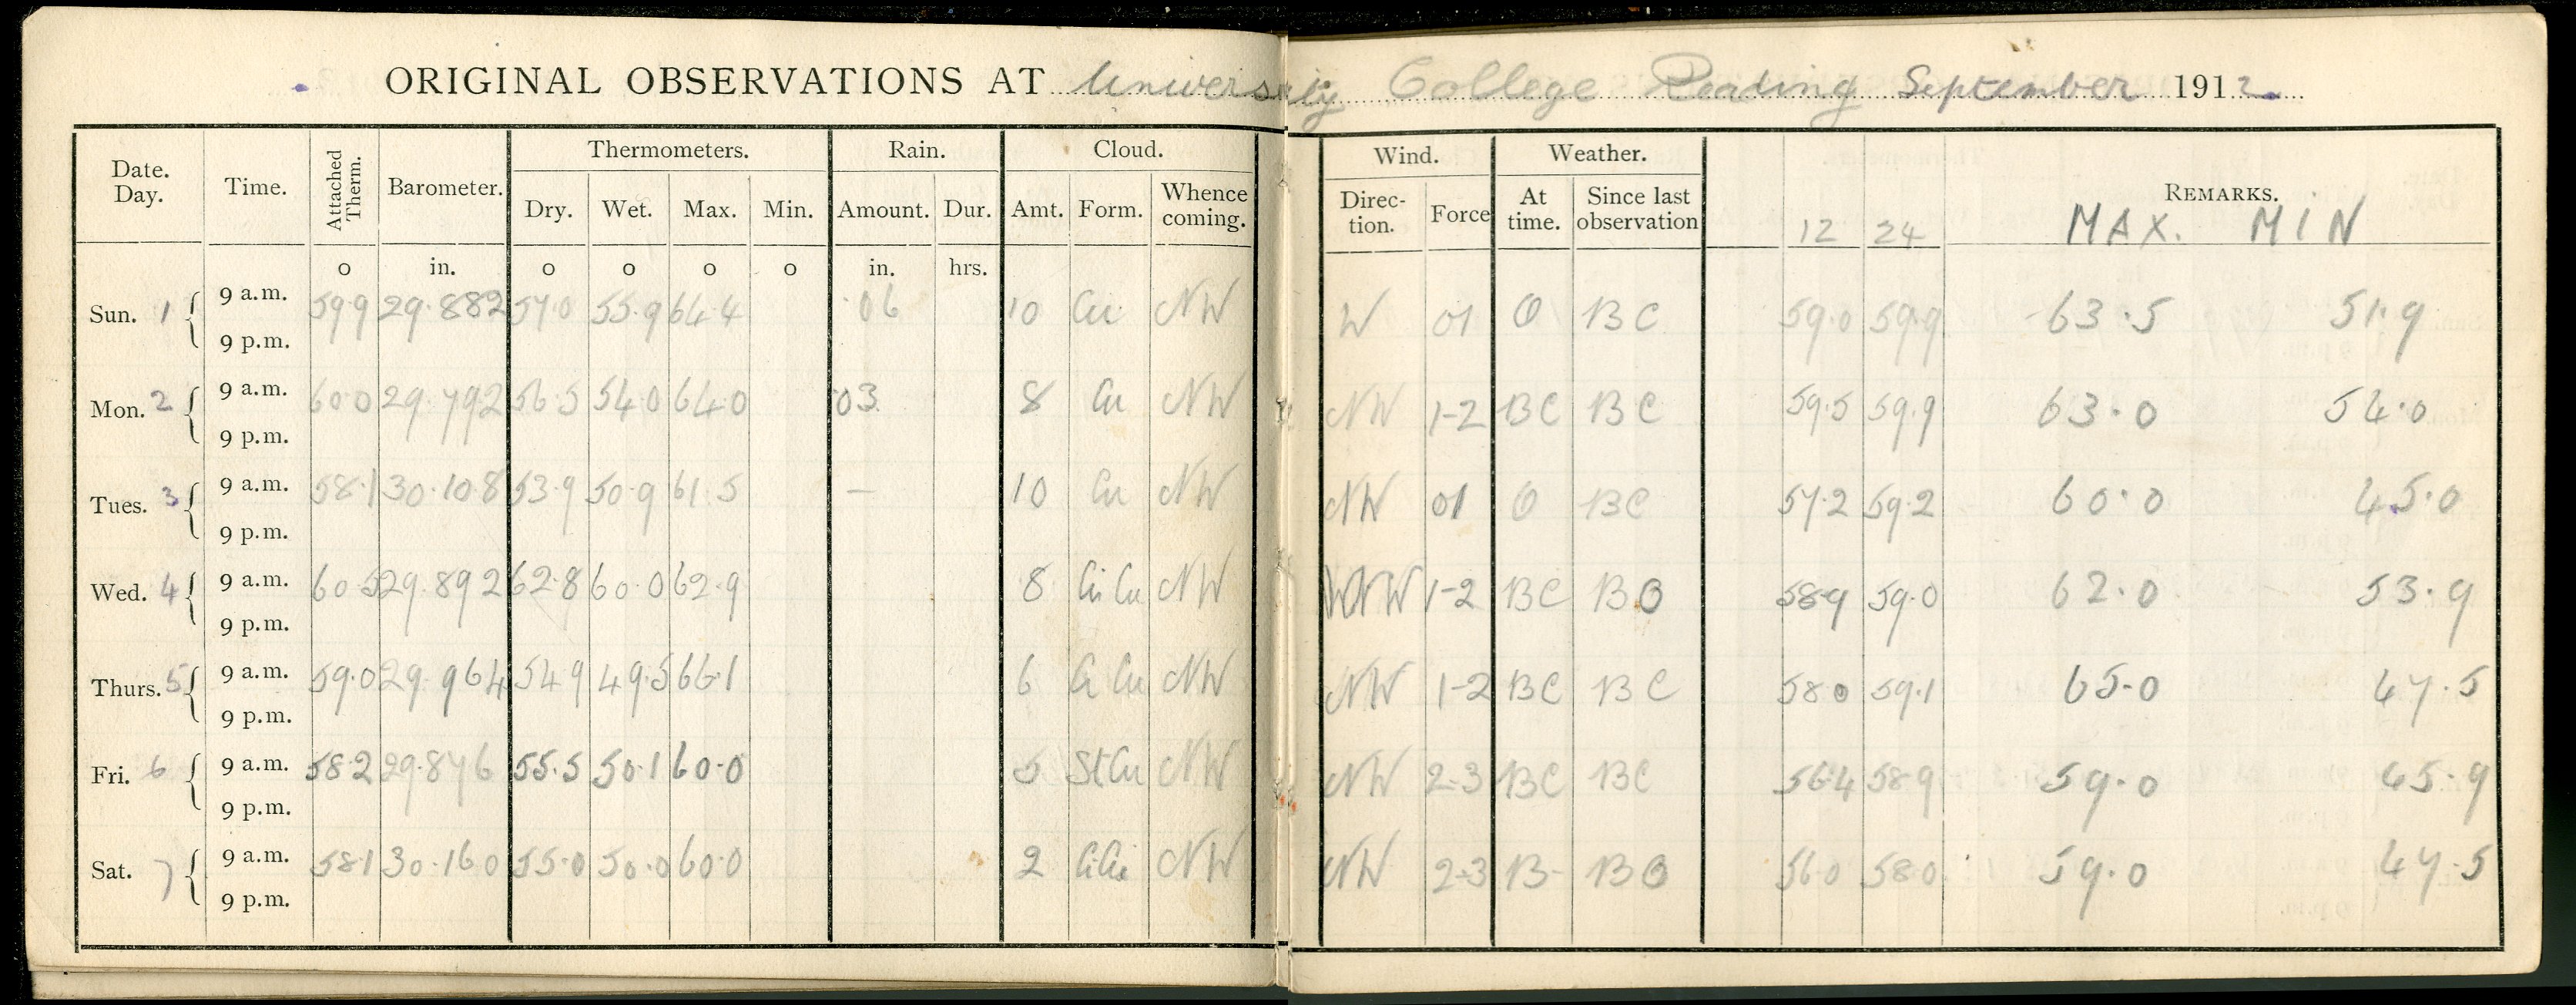 ORIGINAL OBSERVATIONS AT University College Reading September 1912.
Date. Day. Time. Attached Therm. Barometer. Thermometers. Rain. Cloud. Wind. Weather. REMARKS.
Dry. Wet. Max. Min. Amount. Dur. Amt. Form. Whence coming. Direc-tion. Force At time. Since last observation 12 24 MAX. MIN
o in. o o o o in. hrs.
Sun. 1 9 a.m. 59.9 29.882 57.0 55.9 64.4 .06 10 Cu NW W 01 O BC 59.0 59.9 63.5 51.9
9 p.m.
Mon. 2 9 a.m. 60.0 29.792 56.5 54.0 64.0 .03 8 Cu NW NW 1-2 BC BC 59.5 59.9 63.0 54.0
9 p.m.
Tues. 3 9 a.m. 58.1 30.108 53.9 50.9 61.5 — 10 Cu NW NW 01 O BC 57.2 59.2 60.0 45.0
9 p.m.
Wed. 4 9 a.m. 60.5 29.892 62.8 60.0 62.9 8 Ci Cu NW WNW 1-2 BC BO 58.9 59.0 62.0 53.9
9 p.m.
Thurs. 5 9 a.m. 59.0 29.964 54.9 49.5 66.1 6 Ci Cu NW NW 1-2 BC BC 58.0 59.1 65.0 47.5
9 p.m.
Fri. 6 9 a.m. 58.2 29.876 55.5 50.1 60.0 5 St Cu NW NW 2-3 BC BC 56.4 58.9 59.0 45.9
9 p.m.
Sat. 7 9 a.m. 58.1 30.160 55.0 50.0 60.0 2 NW NW 2-3 B BO 56.0 58.0 59.0 47.5
9 p.m.